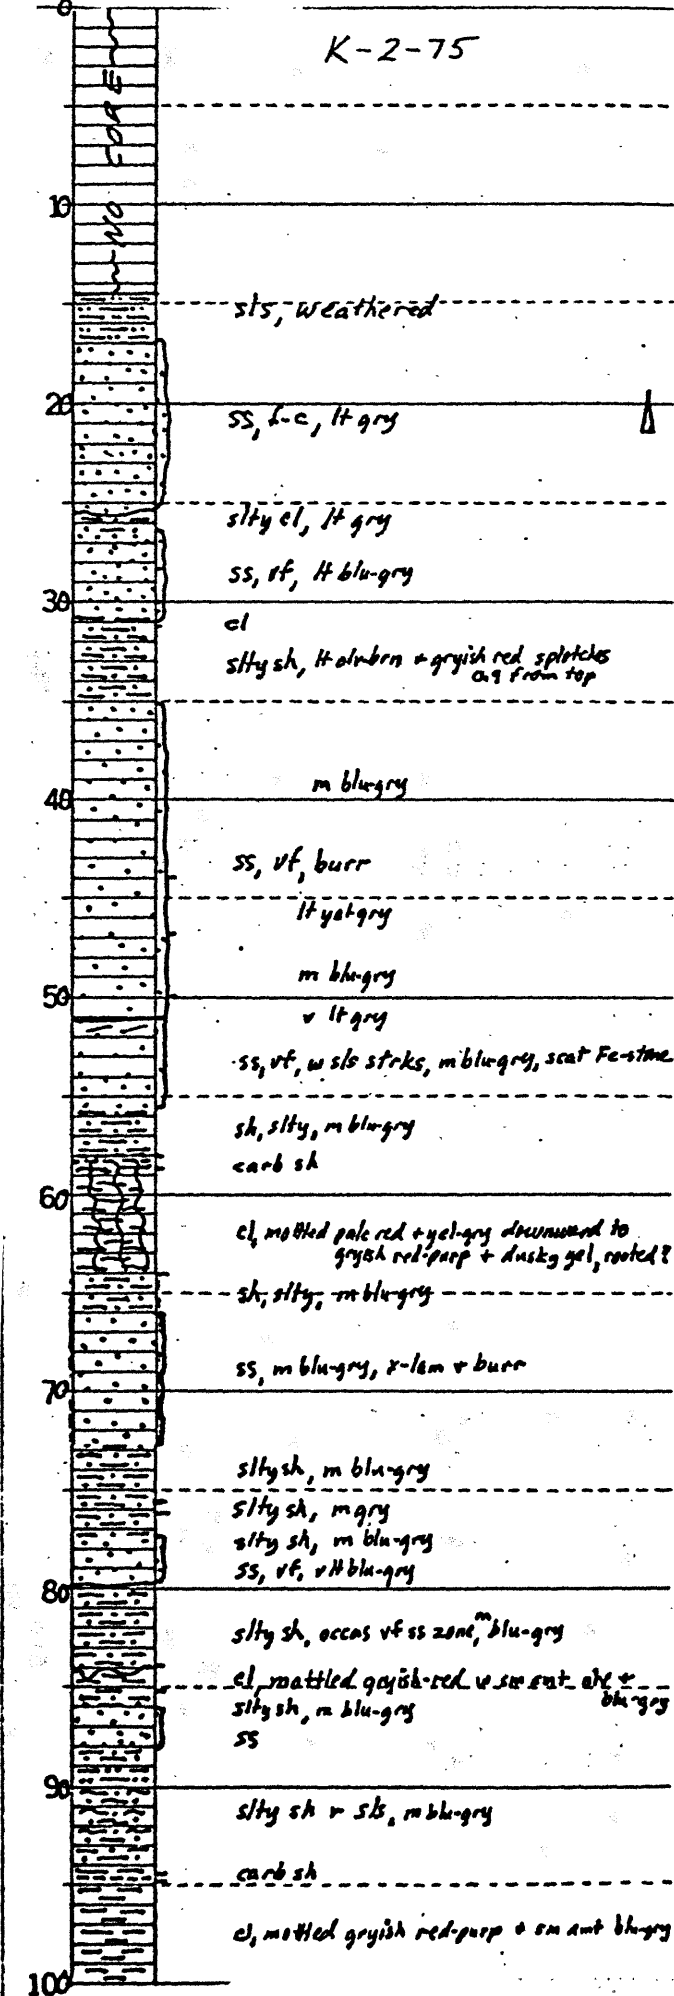 0
K-2-75
NO CORE
10
sls, weathered
20
ss, f-c, lt gry
slty cl, lt gry
ss, vf, lt blu-gry
30
cl
slty sh, lt olv-brn + gryish red splotches
0.9 from top
m blu-gry
40
ss, vf, burr
lt yel gry
m blu-gry
50
v lt gry
ss, vf, w sls strks, m blu-gry, scat Fe-stone
sh, slty, m blu-gry
carb sh
60
cl, mottled pale red + yel-gry downward to
gryish red-purp + dusky yel, rooted?
sh, slty, m blu-gry
ss, m blu-gry, x-lam + burr
70
slty sh, m blu-gry
slty sh, m gry
slty sh, m blu-gry
ss, vf, v lt blu-gry
80
slty sh, occas vf ss zone, m blu-gry
cl, mottled gryish-red w sm amt olv +
blu-gry
slty sh, m blu-gry
ss
90
slty sh + sls, m blu-gry
carb sh
cl, mottled gryish red-purp + sm amt blu-gry
100